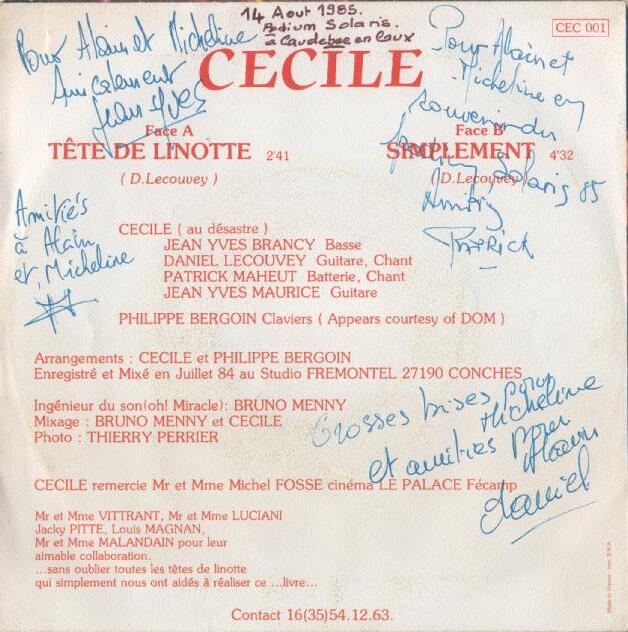 14 Aout 1985.
Podium Solaris.
à Caudebec en Caux
CEC 001
Pour Alain et Micheline
Amicalement
Jean Yves
Pour Alain et
Micheline en
souvenir du
podium Solaris 85
Amitiés
Patrick
CECILE
Face A
TÊTE DE LINOTTE 2'41
( D.Lecouvey )
Face B
SIMPLEMENT 4'32
( D.Lecouvey )
Amitiés
à Alain
et Micheline
CECILE ( au désastre )
JEAN YVES BRANCY Basse
DANIEL LECOUVEY Guitare, Chant
PATRICK MAHEUT Batterie, Chant
JEAN YVES MAURICE Guitare
PHILIPPE BERGOIN Claviers ( Appears courtesy of DOM )
Arrangements : CECILE et PHILIPPE BERGOIN
Enregistré et Mixé en Juillet 84 au Studio FREMONTEL 27190 CONCHES
Ingénieur du son(oh! Miracle): BRUNO MENNY
Mixage : BRUNO MENNY et CECILE
Photo : THIERRY PERRIER
Grosses bises pour
Micheline
et amitiés pour
Alain
daniel
CECILE remercie Mr et Mme Michel FOSSE cinéma LE PALACE Fécamp
Mr et Mme VITTRANT, Mr et Mme LUCIANI
Jacky PITTE, Louis MAGNAN,
Mr et Mme MALANDAIN pour leur
aimable collaboration.
...sans oublier toutes les têtes de linotte
qui simplement nous ont aidés à réaliser ce ...livre...
Contact 16(35)54.12.63.